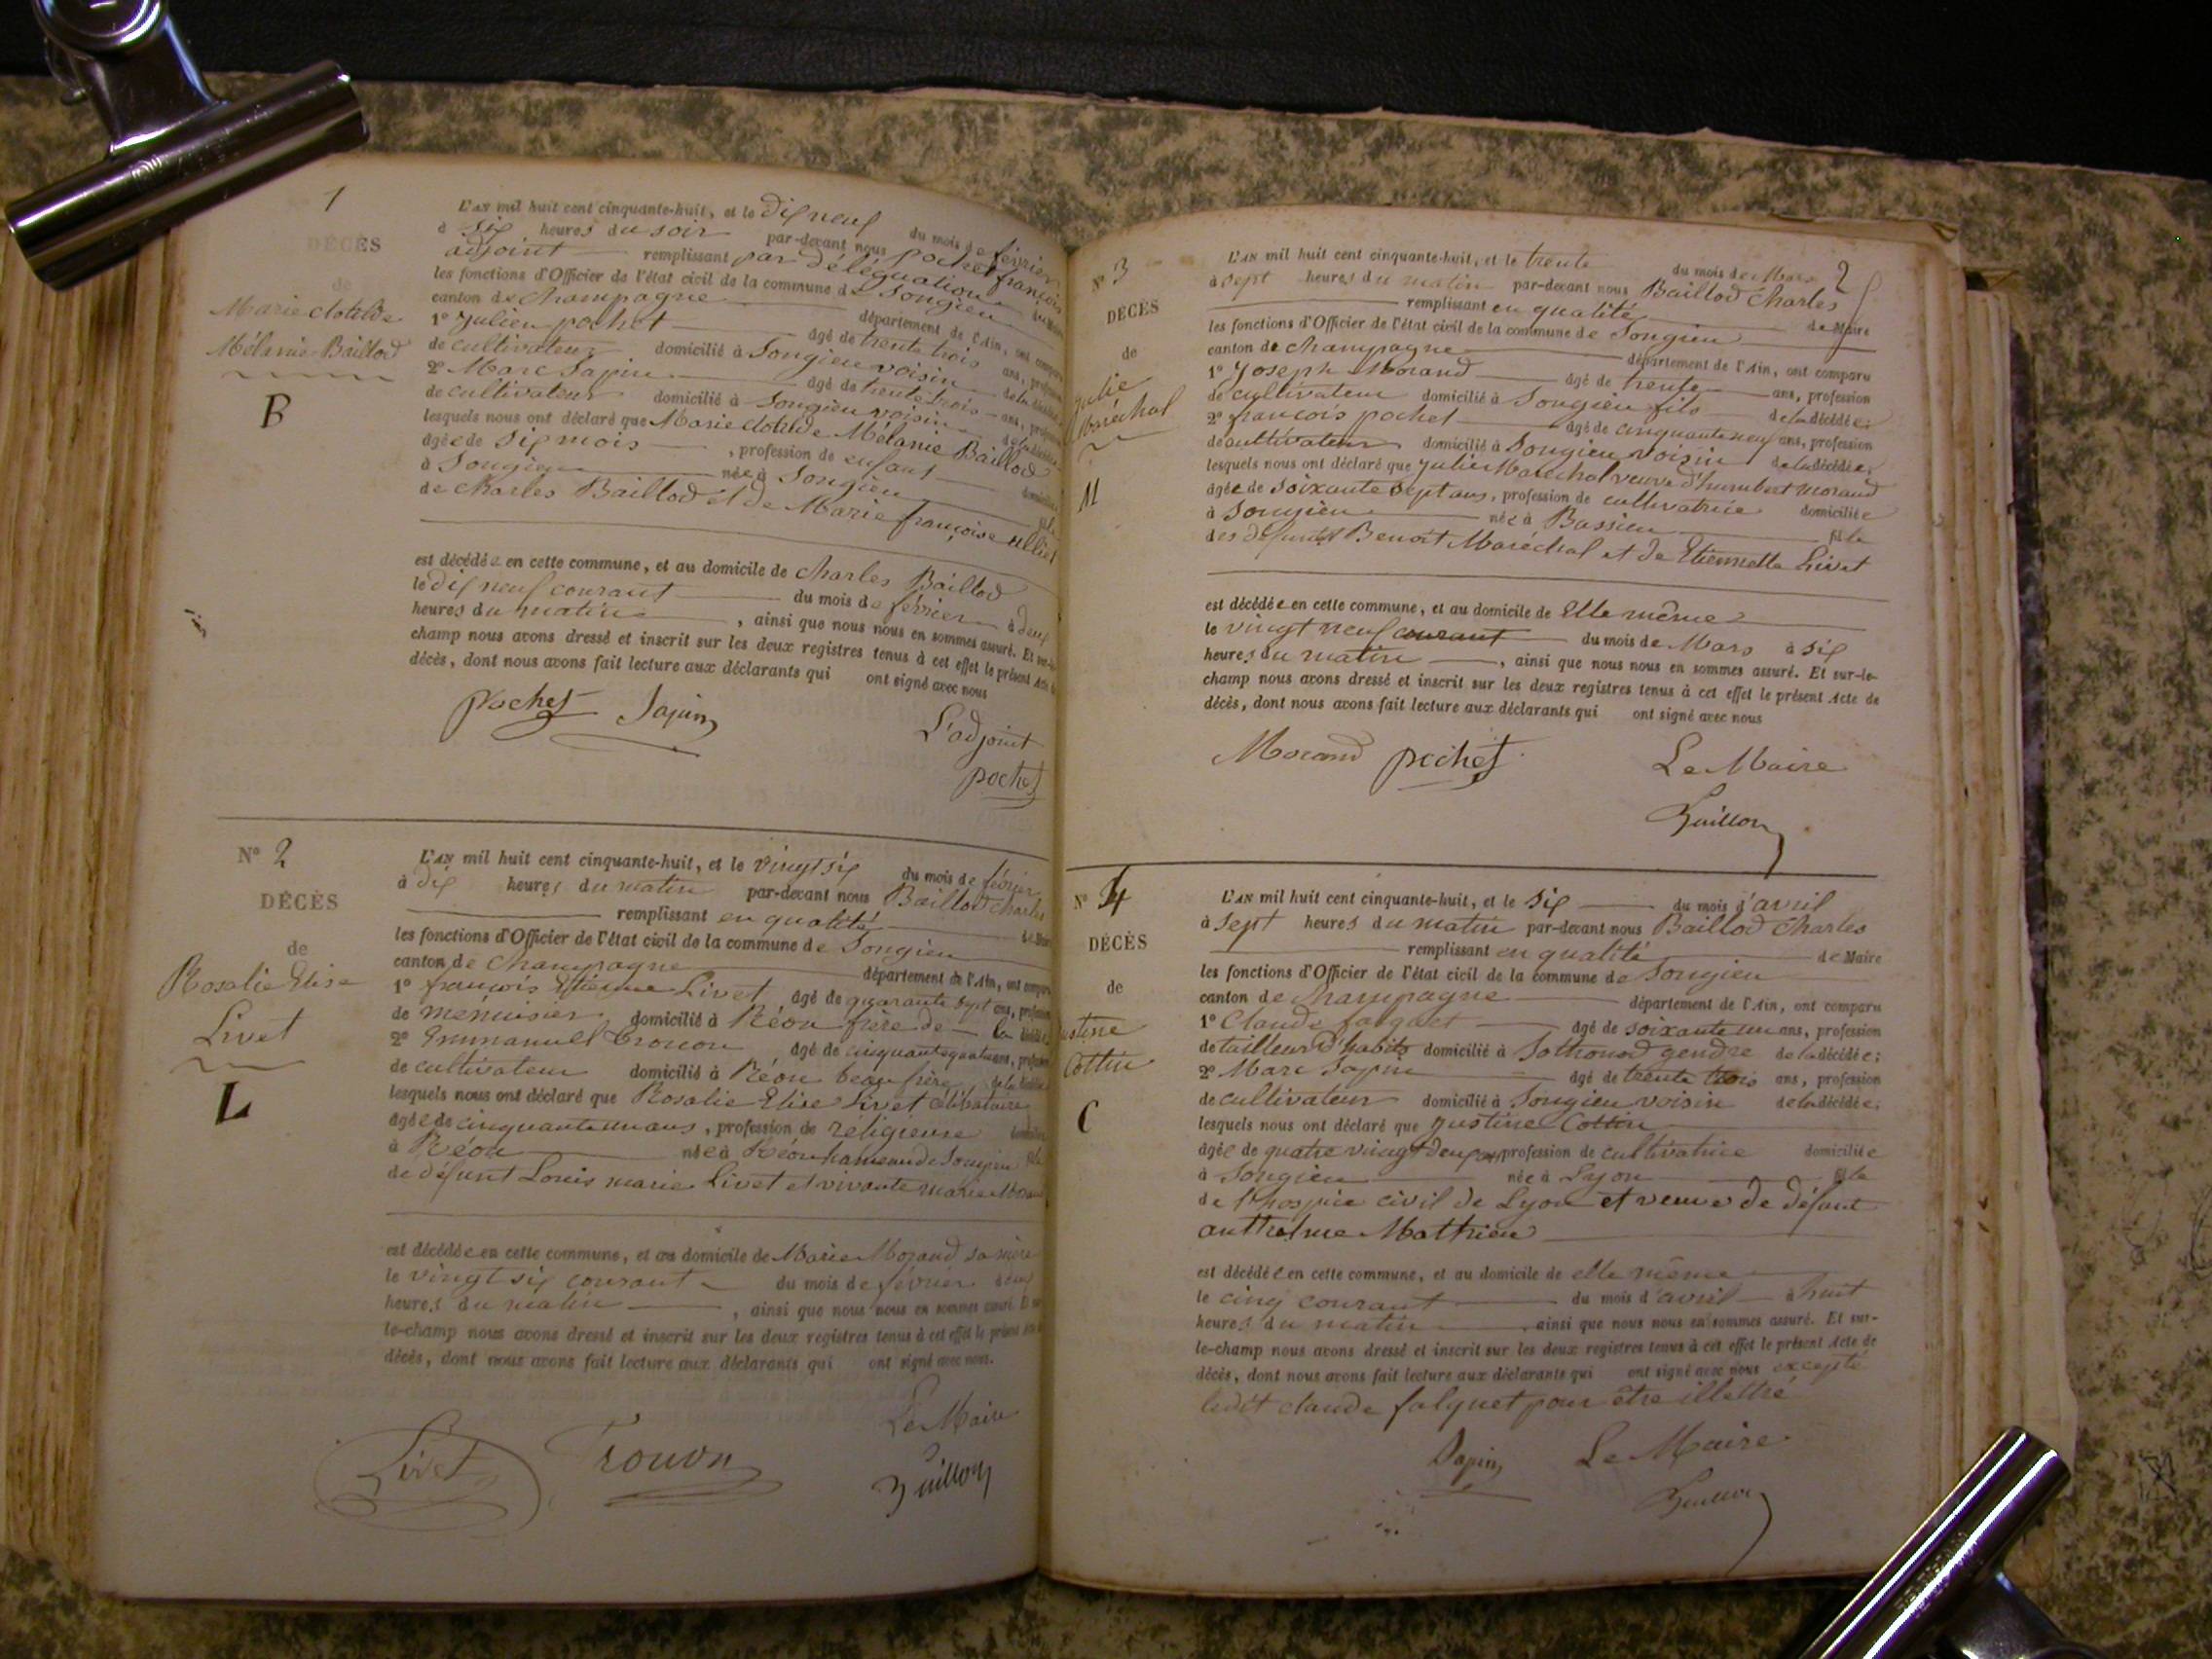 1
DÉCÈS
de
Marie clotilde
Mélanie Baillod
B
L'AN mil huit cent cinquante-huit, et le dix neuf du mois de février
à six heures du soir par-devant nous pochet françois
adjoint remplissant par délégation
les fonctions d'Officier de l'état civil de la commune de Songieu
canton de champagne département de l'Ain, ont comparu
1° Julien pochet âgé de trente trois ans,
de cultivateur domicilié à Songieu voisin de la décédée
2° Marc Sapin âgé de trente trois ans,
de cultivateur domicilié à Songieu voisin de la décédée
lesquels nous ont déclaré que Marie clotilde Mélanie Baillod
âgée de six mois , profession de enfant
à Songieu née à Songieu fille
de charles Baillod et de Marie françoise
est décédée en cette commune, et au domicile de charles Baillod
le dix neuf courant du mois de février à deux
heures du matin , ainsi que nous nous en sommes assuré. Et sur-le-
champ nous avons dressé et inscrit sur les deux registres tenus à cet effet le présent Acte de
décès, dont nous avons fait lecture aux déclarants qui ont signé avec nous
pochet Sapin
L'adjoint
pochet
N° 2
DÉCÈS
de
Rosalie Elise
Livet
L
L'AN mil huit cent cinquante-huit, et le vingt six du mois de février
à dix heures du matin par-devant nous Baillod charles
remplissant en qualité de Maire
les fonctions d'Officier de l'état civil de la commune de Songieu
canton de champagne département de l'Ain, ont comparu
1° françois Etienne Livet âgé de quarante sept ans, profession
de menuisier domicilié à Réon frère de la décédée
2° Emmanuel Trouon âgé de cinquante quatre ans, profession
de cultivateur domicilié à Réon beau frère de la décédée
lesquels nous ont déclaré que Rosalie Elise Livet célibataire
âgée de cinquante un ans , profession de religieuse
à Réon née à Réon hameau de Songieu fille
de défunt Louis marie Livet et vivante marie Morand
est décédée en cette commune, et au domicile de Marie Morand sa mère
le vingt six courant du mois de février à
heures du matin , ainsi que nous nous en sommes assuré. Et sur-
le-champ nous avons dressé et inscrit sur les deux registres tenus à cet effet le présent Acte
décès, dont nous avons fait lecture aux déclarants qui ont signé avec nous.
Le Maire
Livet Trouon
2
N° 3
DÉCÈS
de
Julie
Maréchal
M
L'AN mil huit cent cinquante-huit, et le trente du mois de Mars
à sept heures du matin par-devant nous Baillod charles
remplissant en qualité de Maire
les fonctions d'Officier de l'état civil de la commune de Songieu
canton de champagne département de l'Ain, ont comparu
1° Joseph Morand âgé de trente ans, profession
de cultivateur domicilié à Songieu fils de la décédée;
2° françois pochet âgé de cinquante neuf ans, profession
de cultivateur domicilié à Songieu voisin de la décédée;
lesquels nous ont déclaré que Julie Maréchal veuve d'humbert Morand
âgée de soixante sept ans, profession de cultivatrice domiciliée
à Songieu née à Bassieu fille
des défunts Benoit Maréchal et de Etiennette Livet
est décédée en cette commune, et au domicile de Elle même
le vingt neuf courant du mois de Mars à six
heures du matin , ainsi que nous nous en sommes assuré. Et sur-le-
champ nous avons dressé et inscrit sur les deux registres tenus à cet effet le présent Acte de
décès, dont nous avons fait lecture aux déclarants qui ont signé avec nous
Morand pochet Le Maire
N° 4
DÉCÈS
de
ustine
Cottin
C
L'AN mil huit cent cinquante-huit, et le six du mois d'avril
à sept heures du matin par-devant nous Baillod Charles
remplissant en qualité de Maire
les fonctions d'Officier de l'état civil de la commune de Songieu
canton de champagne département de l'Ain, ont comparu
1° Claude falquet âgé de soixante un ans, profession
de tailleur d'habits domicilié à Sothonod gendre de la décédée;
2° Marc Sapin âgé de trente trois ans, profession
de cultivateur domicilié à Songieu voisin de la décédée;
lesquels nous ont déclaré que Justine Cottin
âgée de quatre vingt deux ans profession de cultivatrice domiciliée
à Songieu née à Lyon fille
de l'hospice civil de Lyon et veuve de défunt
anthelme Mathieu
est décédée en cette commune, et au domicile de elle même
le cinq courant du mois d'avril à huit
heures du matin ainsi que nous nous en sommes assuré. Et sur-
le-champ nous avons dressé et inscrit sur les deux registres tenus à cet effet le présent Acte de
décès, dont nous avons fait lecture aux déclarants qui ont signé avec nous excepté
ledit claude falquet pour être illettré
Sapin Le Maire